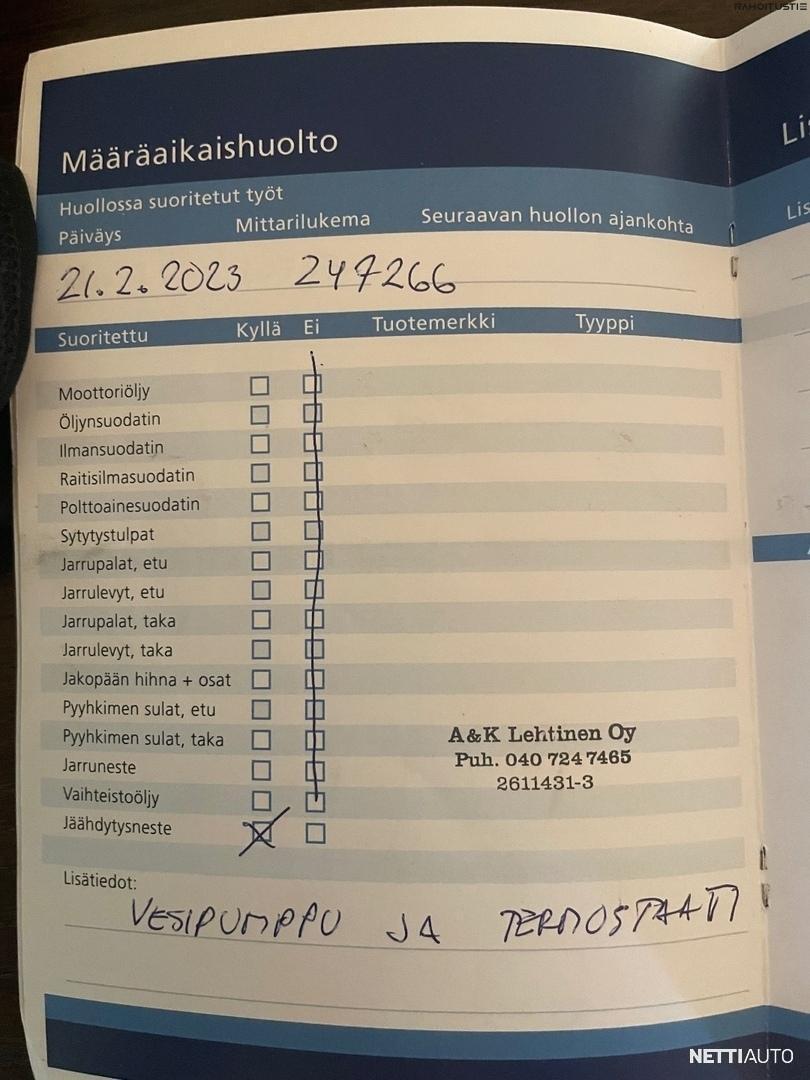 RAHOITUSTIE
Määräaikaishuolto
Huollossa suoritetut työt
Päiväys Mittarilukema Seuraavan huollon ajankohta
21.2.2023 247266
Suoritettu Kyllä Ei Tuotemerkki Tyyppi
Moottoriöljy
Öljynsuodatin
Ilmansuodatin
Raitisilmasuodatin
Polttoainesuodatin
Sytytystulpat
Jarrupalat, etu
Jarrulevyt, etu
Jarrupalat, taka
Jarrulevyt, taka
Jakopään hihna + osat
Pyyhkimen sulat, etu
Pyyhkimen sulat, taka
Jarruneste
Vaihteistoöljy
Jäähdytysneste
A&K Lehtinen Oy
Puh. 040 724 7465
2611431-3
Lisätiedot:
VESIPUMPPU JA TERMOSTAATTI
Lis
Lis
NETTIAUTO